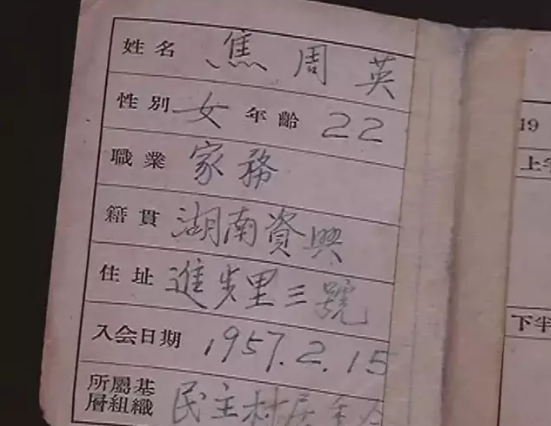 姓名 焦周英
性別 女 年齡 22
職業 家務
籍貫 湖南資興
住址 進步里三號
入会日期 1957.2.15
所屬基層組織 民主村居委会
19
上半
下半